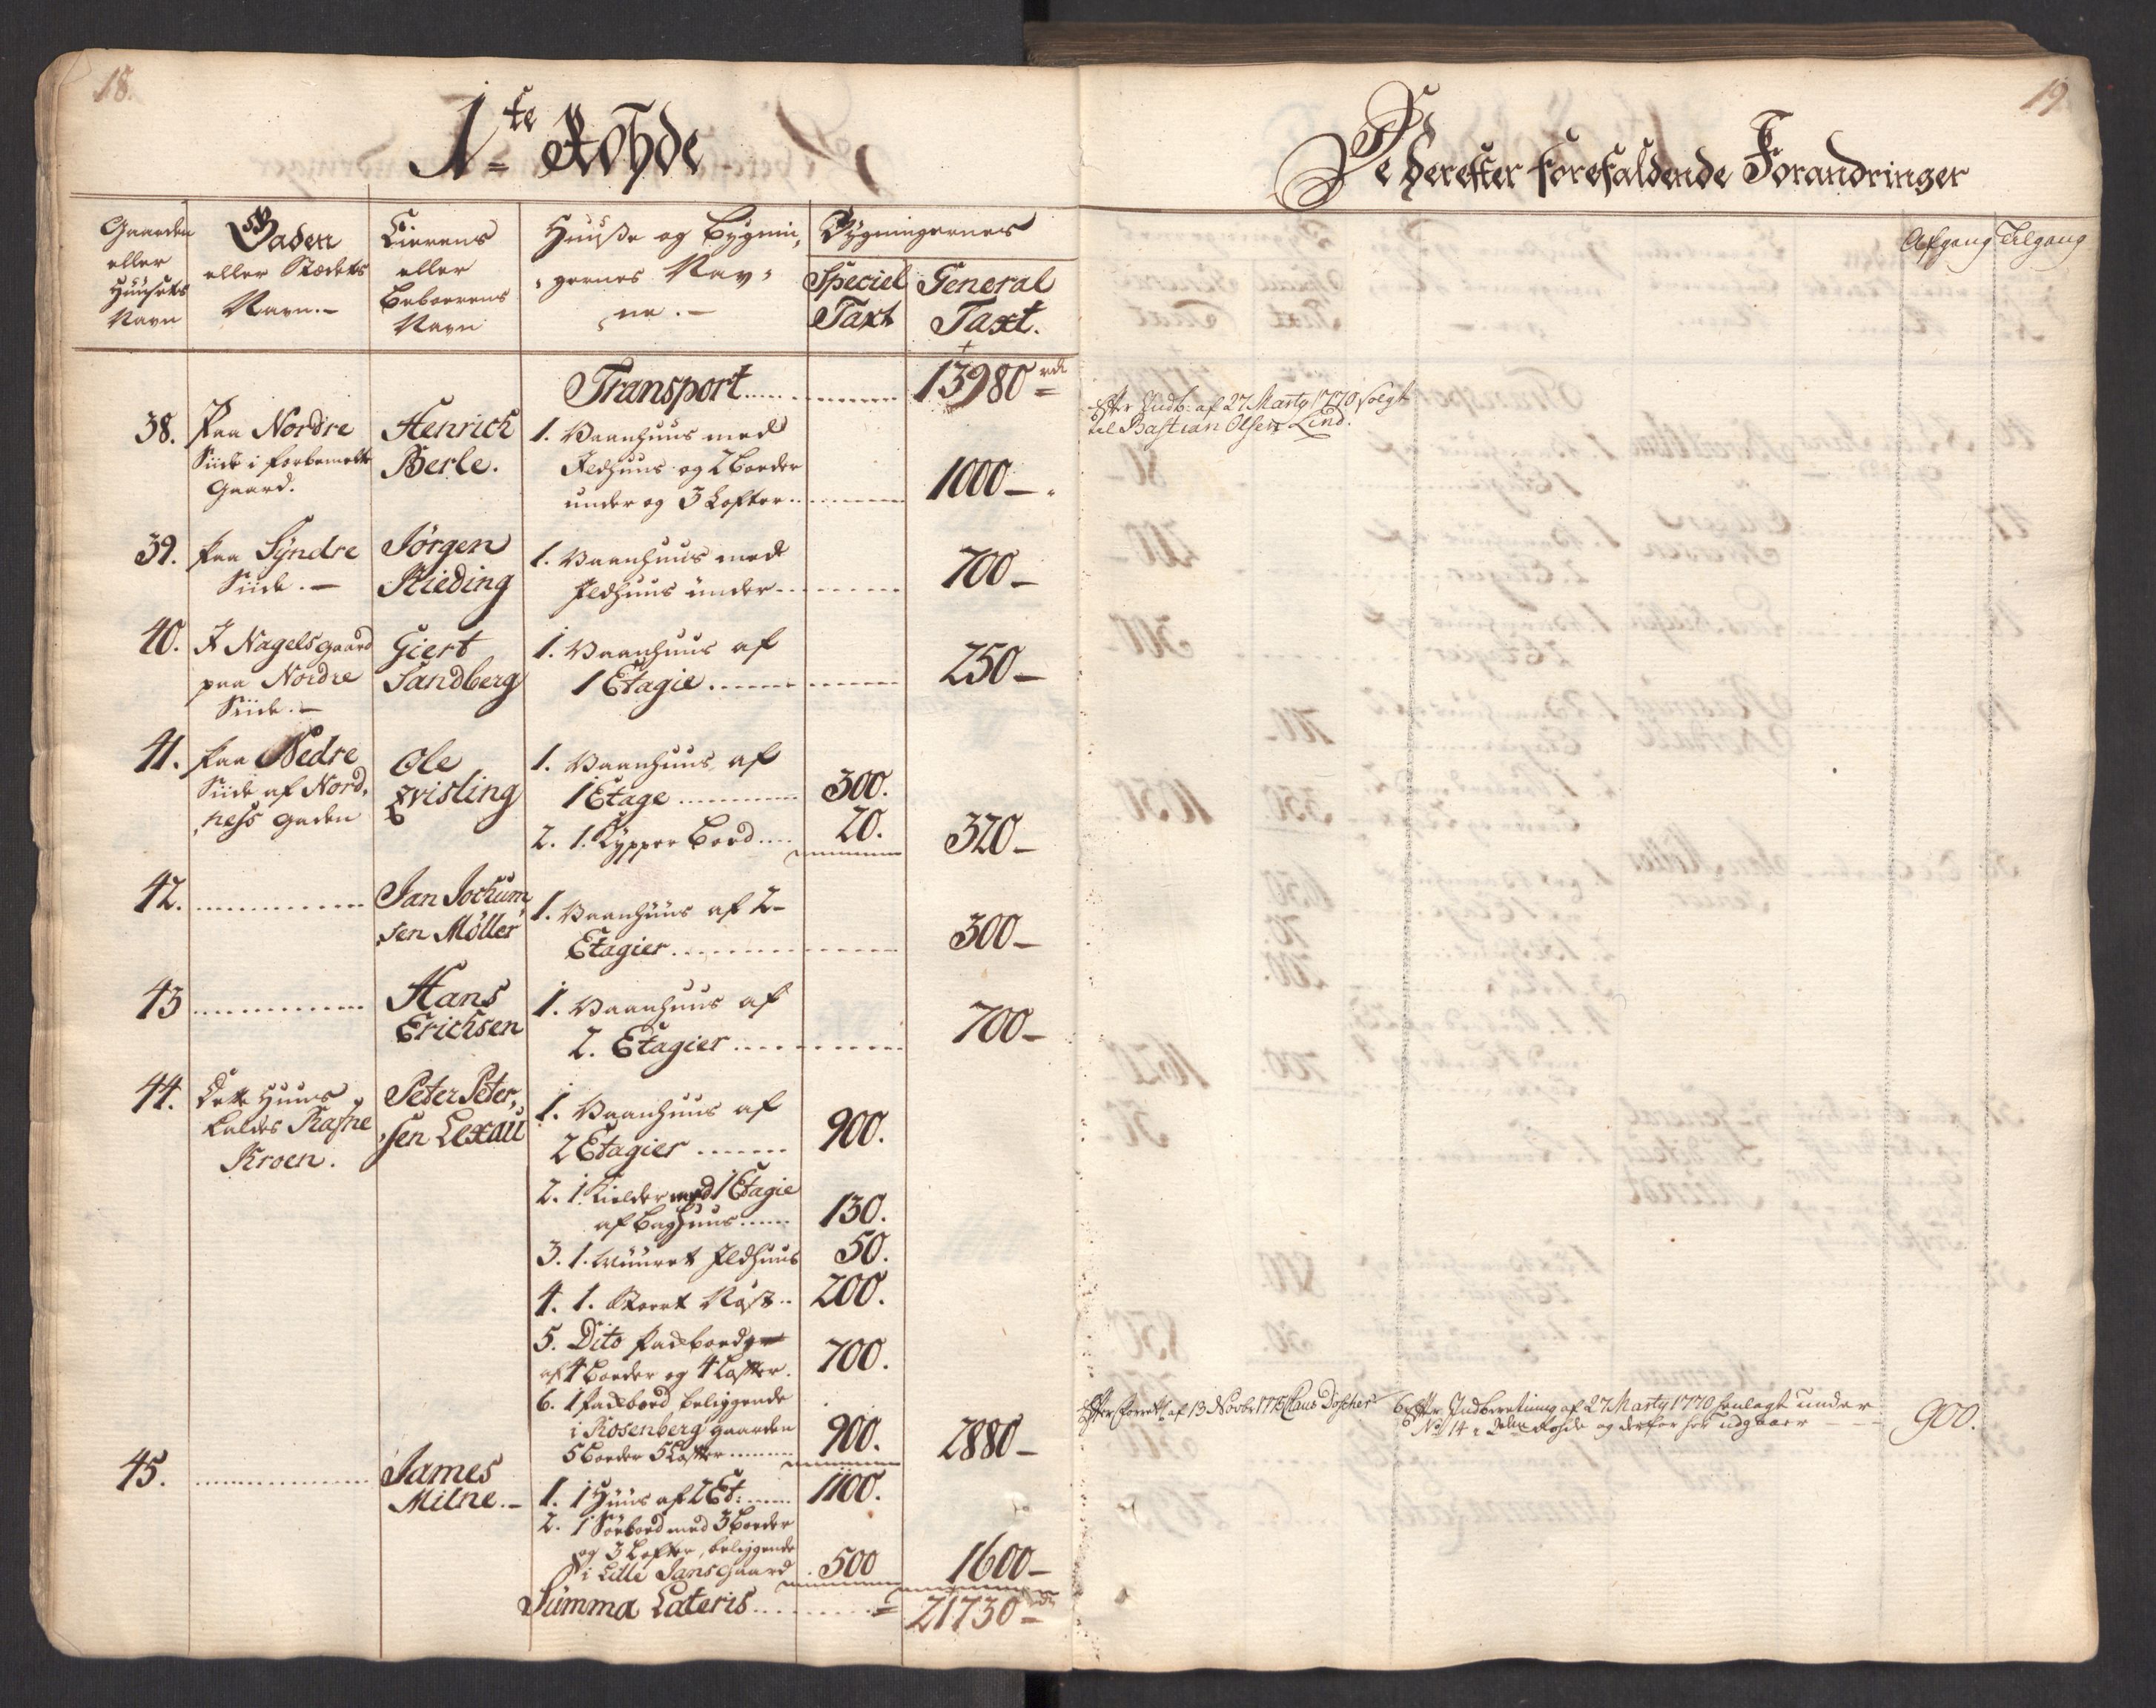 18.
1te Rohde
Gaarden
eller
Huusets
Navn
Gaden
eller Stædets
Navn.-
Eierens
eller
Beboerens
Navn
Huuse og Bygnin,
,gernes Nav,
,ne.-
Bygningernes
Speciel
Taxt
General
Taxt.
Transport ........ 13980 rdr
38. Paa Nordre
Siide i forbemelte
Gaard.
Henrich
Berle.
1. Vaanhuus med
Ildhuus og 2 Boeder
under og 3 Lofter ........ 1000-
39. Paa Syndre
Siide.-
Jörgen
Rieding
1. Vaanhuus med
Ildhuus under ........ 700-
40. I Nagelsgaard
paa Nordre
Siide.-
Giert
Sandberg
1. Vaanhuus af
1 Etagie ........ 250-
41. Paa Nedre
Siide af Nord,
,ness gaden
Ole
Qvisling
1. Vaanhuus af
1 Etage ........ 300.
2. 1. Kypper Boed .... 20. 320-
42. ............ Jan Jochum,
,sen Möller
1. Vaanhuus af 2-
Etagier ........ 300-
43 ............ Hans
Erichsen
1. Vaanhuus af
2. Etagier ........ 700-
44. Dette Huus
kaldes Rafne
Kroen.
Peter Peter,
,sen Lexau
1. Vaanhuus af
2 Etagier ...... 900.
2. 1 Kielder med 1 Etagie
af Baghuus ...... 130.
3. 1. muuret Ildhuus 50.
4. 1. Stoert Nöst .. 200.
5. Dito Pakboed
af 4 Boeder og 4 Lofter. 700.
6. 1 Pakboed beliggende
i Rosenberg gaarden
5 Boeder 5 Lofter ...... 900. 2880-
45. ............ James
Milne.-
1. 1 Huus af 2 Et: ..... 1100.
2. 1 Söeboed med 3 Boeder
og 3 Lofter, beliggende
i Lille Jans Gaard 500 1600-
Summa Lateris ........ 21730 rdr
19
De derefter forefaldende Forandringer
Afgang Tilgang
Efter Indb: af 27 Marty 1770 solgt
til Bastian Olsen Lind.
Efter Forrett: af 13 Novbr 1775 Claus Döscher
6 Efter Indberetning af 27 Marty 1770 henlagt under
No 14 i Rohde og derfor her udgaaer -- 900.